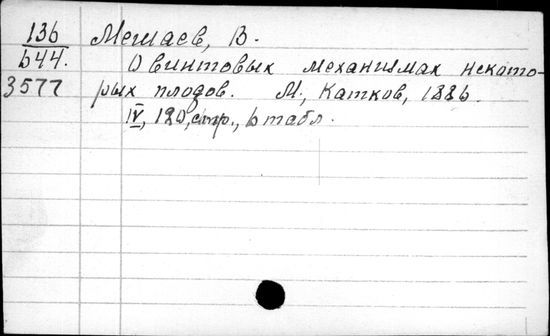 136 Мешаев, В.
644. О винтовых механизмах некото-
3577 рых плодов. М., Катков, 1886.
IV, 120, стр., 6 табл.